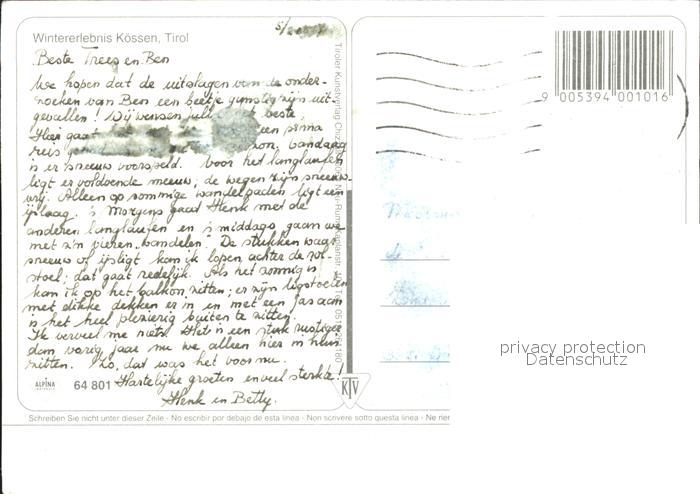 Wintererlebnis Kössen, Tirol
Beste Trees en Ben
We hopen dat de uitslagen van de onder-
zoeken van Ben een beetje gunstig zijn uit-
gevallen! Wij wensen jullie beste
Hier gaat een prima
reis zon, vandaag
is er sneeuw voorspeld. Voor het langlaufen
ligt er voldoende sneeuw; de wegen zijn sneeuw-
vrij. Alleen op sommige wandelpaden ligt een
ijslaag. 's Morgens gaat Henk met de
anderen langlaufen en 's middags gaan we
met z'n vieren "wandelen". De stukken waar
sneeuw of ijs ligt kan ik lopen achter de rol-
stoel; dat gaat redelijk. Als het zonnig is
kan ik op het balkon zitten; er zijn ligstoelen
met dikke dekken er in en met een jas aan
is het heel plezierig buiten te zitten.
Ik verveel me niets. Het is een stuk rustiger
dan vorig jaar nu we alleen hier in huis
zitten. Zo, dat was het voor nu.
Hartelijke groeten en veel sterkte!
Henk en Betty.
ALPINA
64 801
KTV
Tiroler Kunstverlag
9 005394 001016
privacy protection
Datenschutz
Schreiben Sie nicht unter dieser Zeile - No escribir por debajo de esta linea - Non scrivere sotto questa linea - Ne